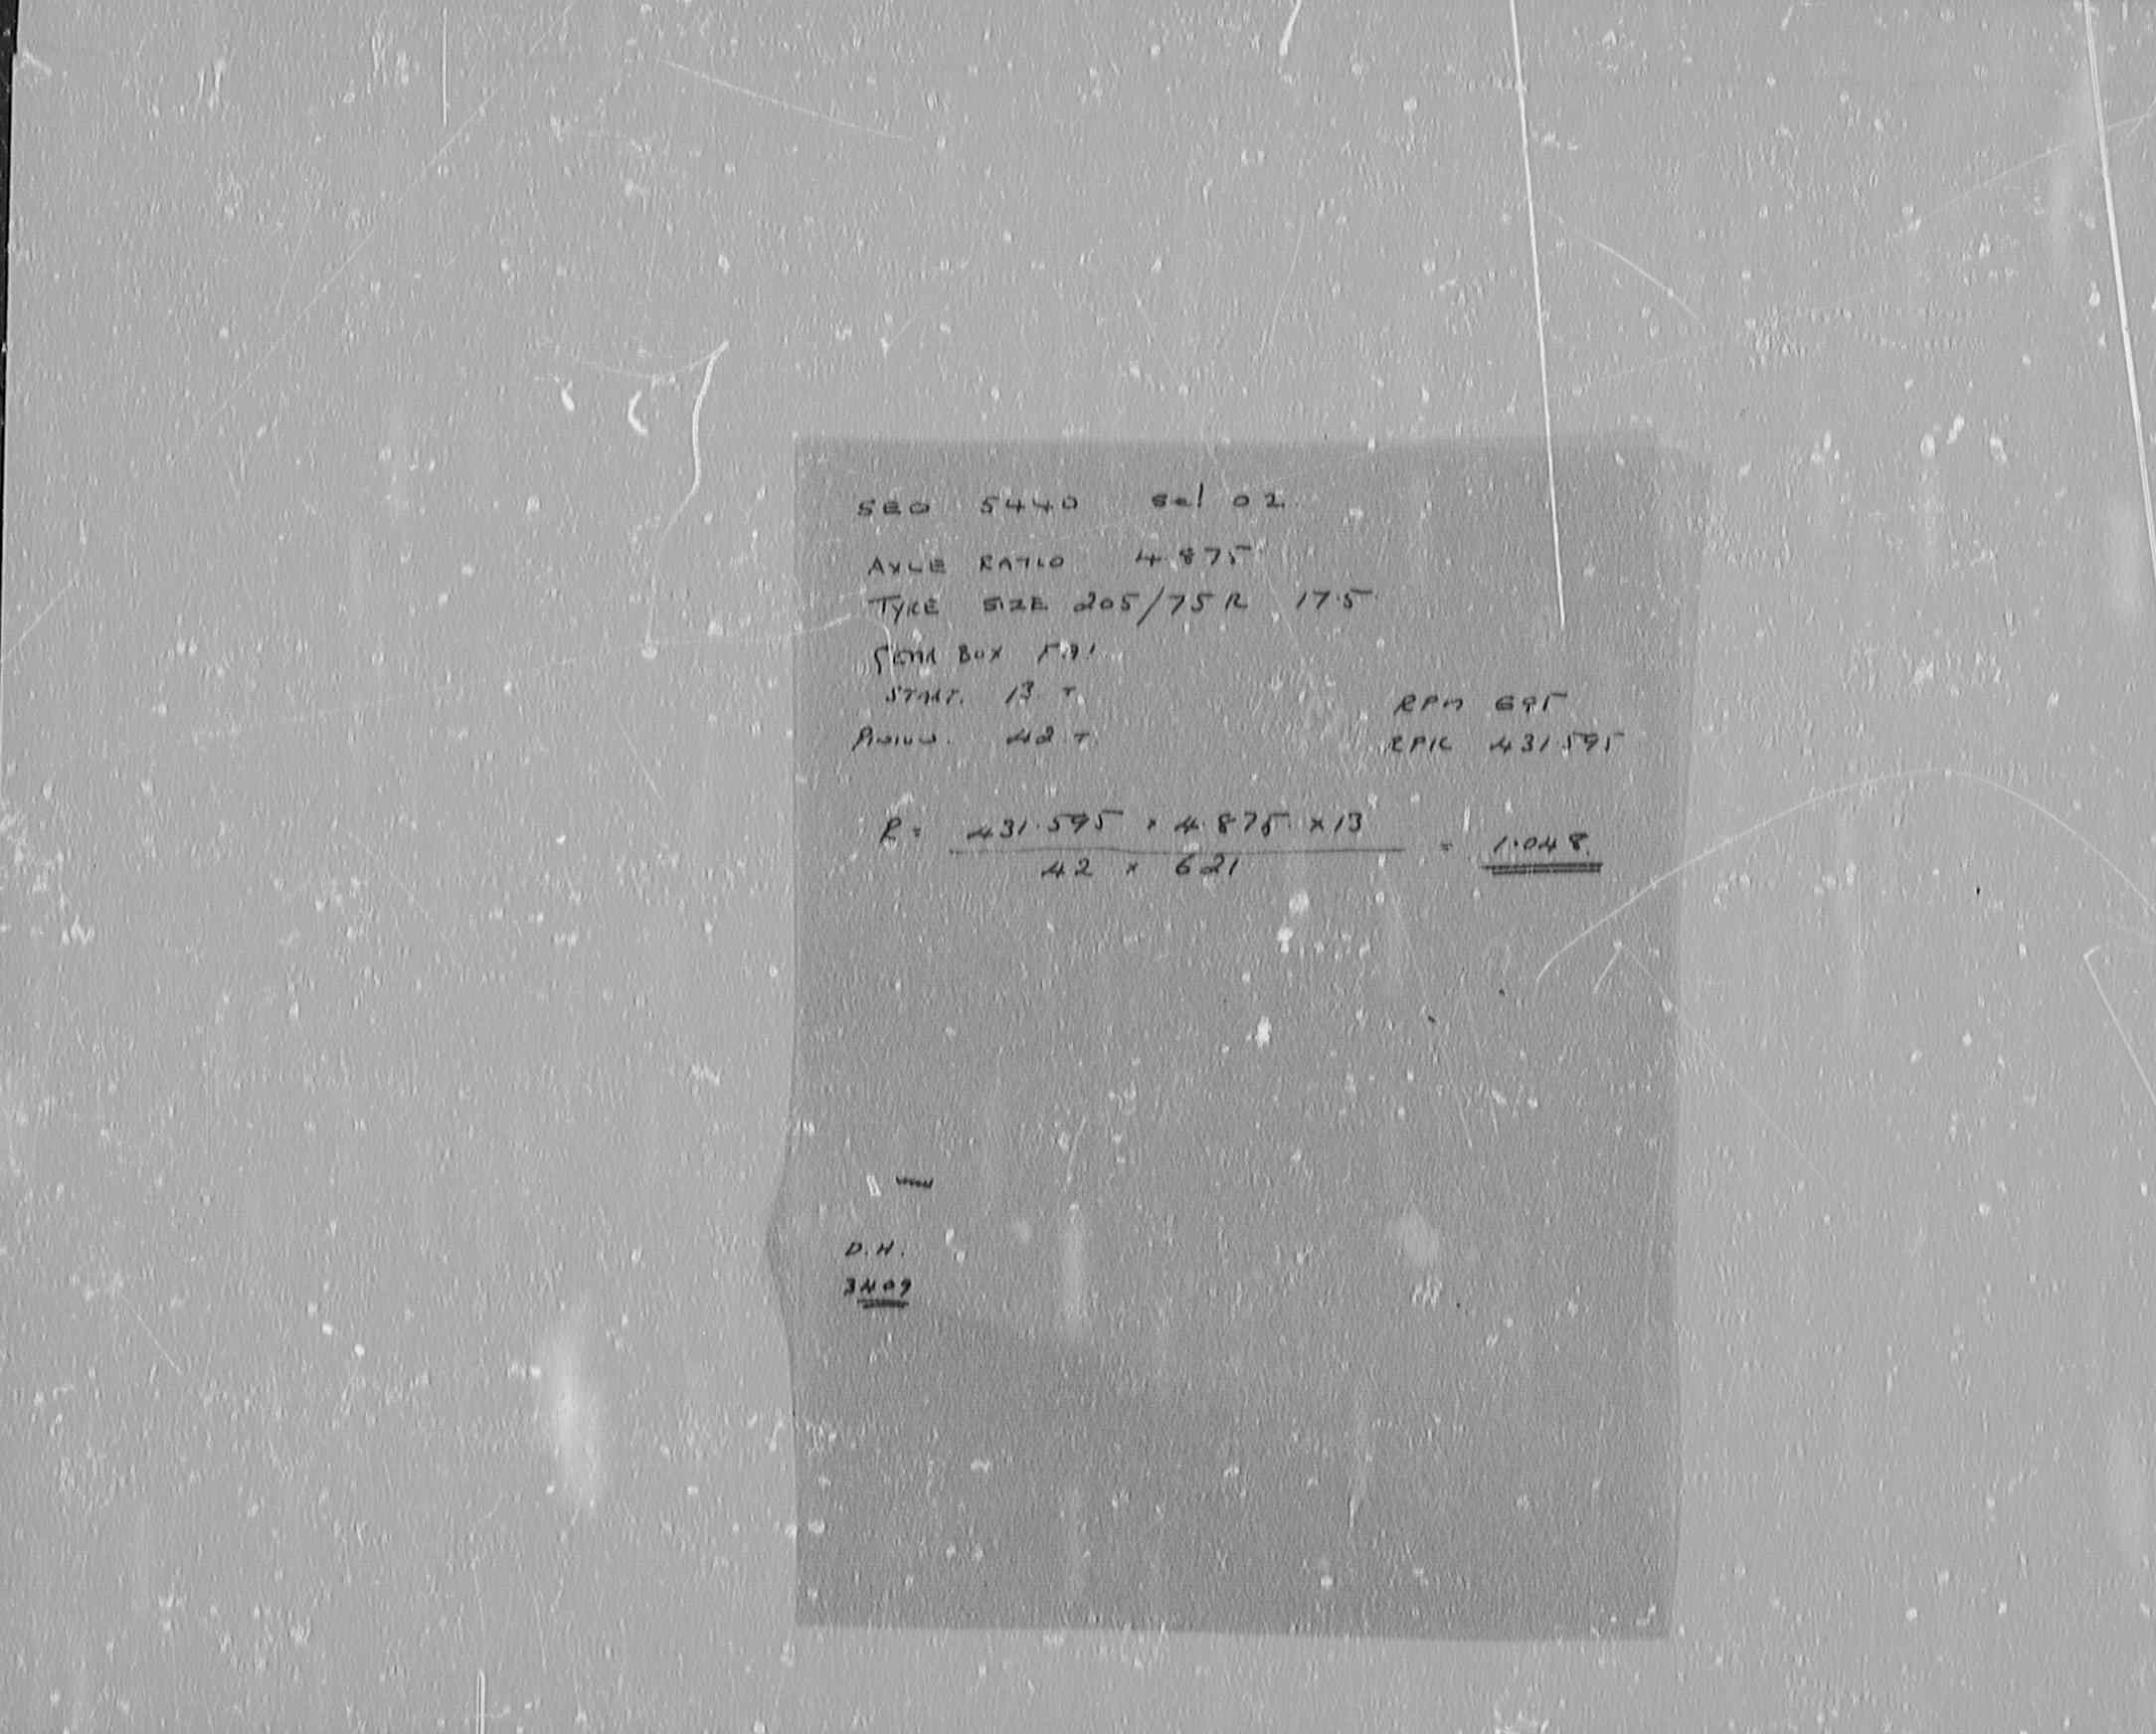 SEO 5440 Sel 02
AXLE RATIO 4.875
TYRE SIZE 205/75 R 17.5
GEAR BOX
START. 13 T
PINION. 42 T
RPM 695
RPK 431.595
R = 431.595 × 4.875 × 13 / 42 × 621 = 1.048
D.H.
3409